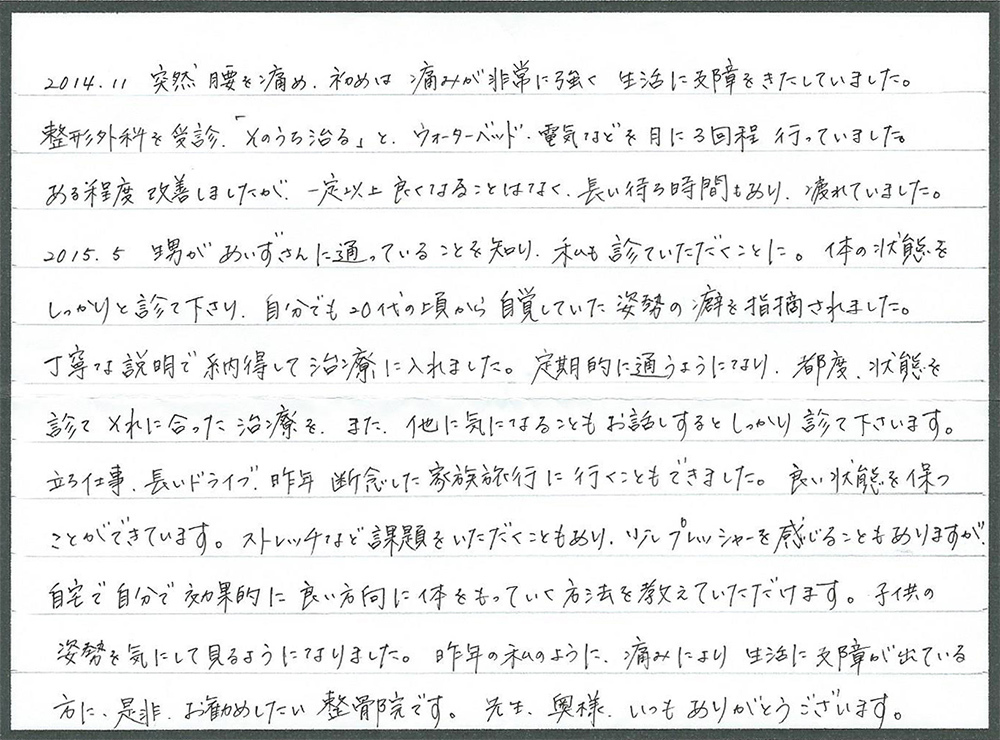 2014.11 突然腰を痛め、初めは痛みが非常に強く生活に支障をきたしていました。
整形外科を受診、「そのうち治る」と、ウォーターベッド・電気などを月に3回程行っていました。
ある程度改善しましたが、一定以上良くなることはなく、長い待ち時間もあり、疲れていました。
2015.5 甥がめいずさんに通っていることを知り、私も診ていただくことに。体の状態を
しっかりと診て下さり、自分でも20代の頃から自覚していた姿勢の癖を指摘されました。
丁寧な説明で納得して治療に入れました。定期的に通うようになり、都度、状態を
診てそれに合った治療を、また、他に気になることもお話しするとしっかり診て下さいます。
立ち仕事、長いドライブ、昨年断念した家族旅行に行くこともできました。良い状態を保つ
ことができています。ストレッチなど課題をいただくこともあり、少しプレッシャーを感じることもありますが、
自宅で自分で効果的に良い方向に体をもっていく方法を教えていただけます。子供の
姿勢を気にして見るようになりました。昨年の私のように、痛みにより生活に支障が出ている
方に、是非、お勧めしたい整骨院です。先生、奥様、いつもありがとうございます。